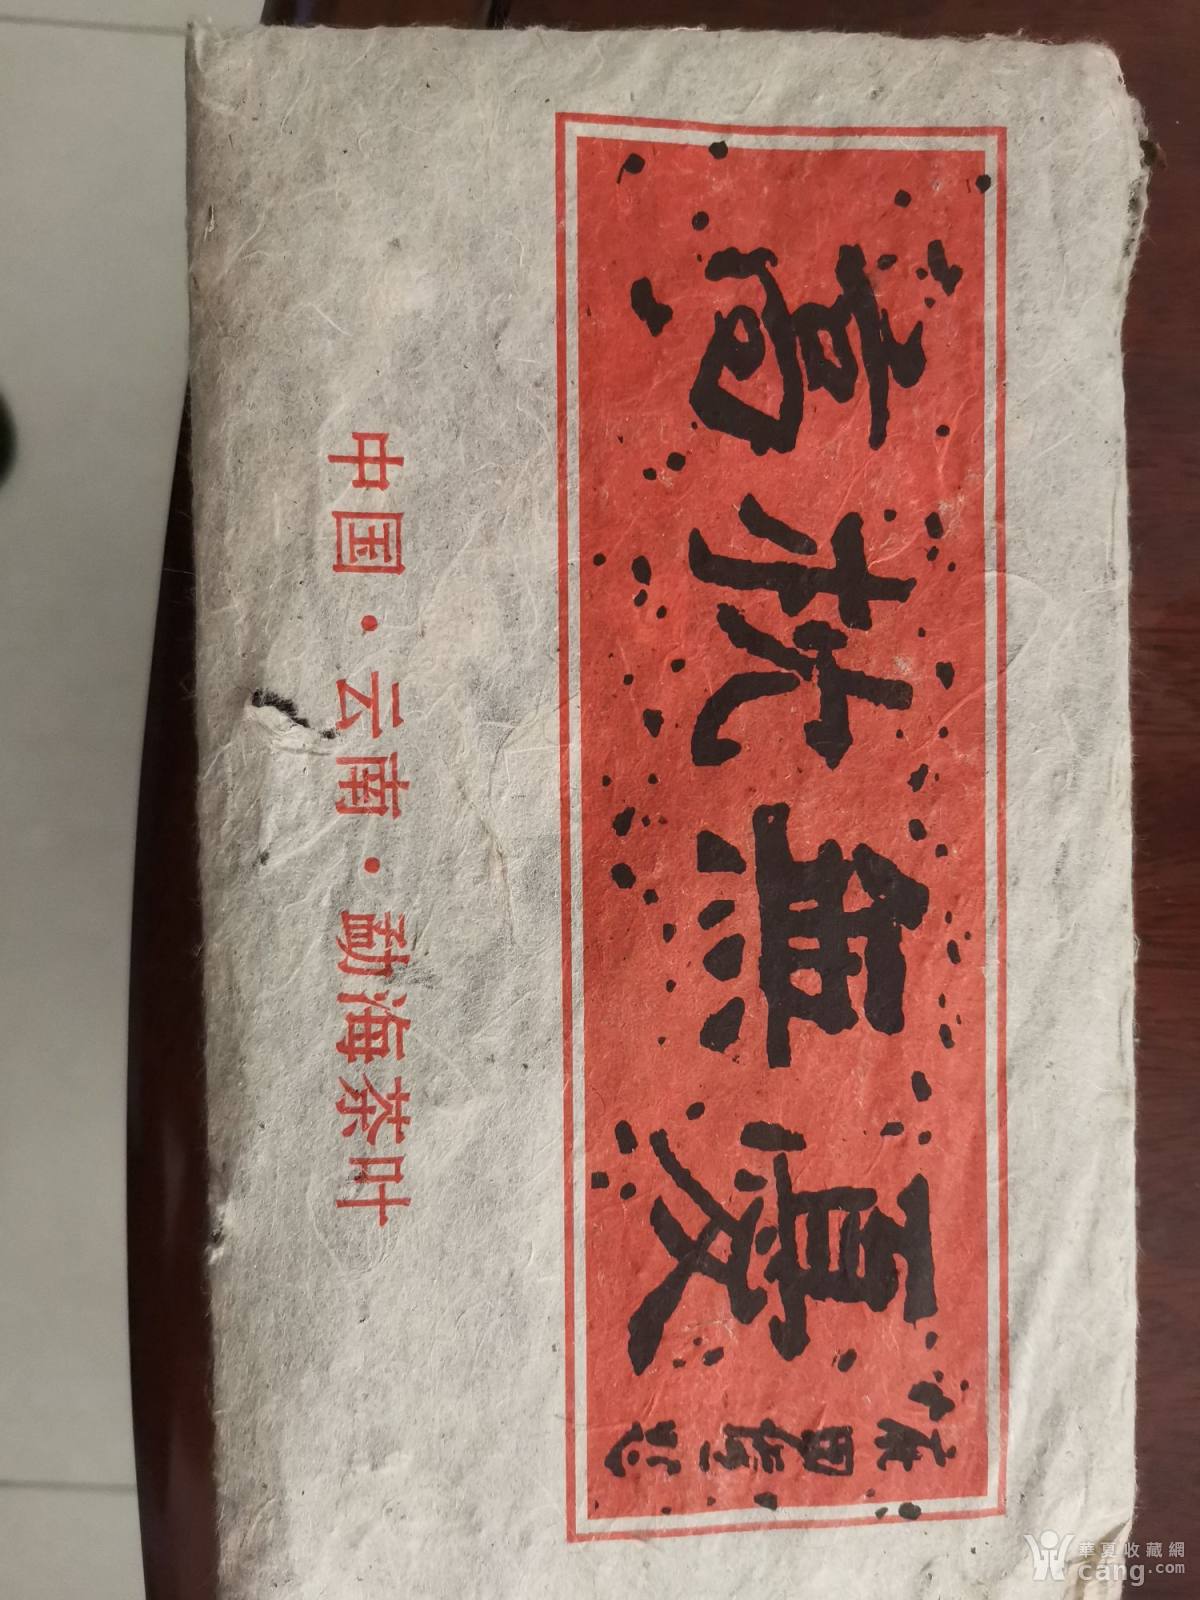 高枕無憂
中国·云南·勐海茶叶
華夏收藏網
cang.com